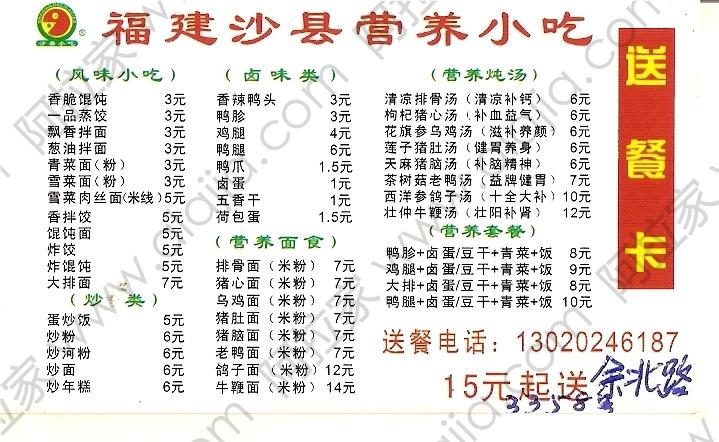 福建沙县营养小吃
沙县小吃
送餐卡
（风味小吃）
香脆馄饨 3元
一品蒸饺 3元
飘香拌面 3元
葱油拌面 3元
青菜面（粉） 3元
雪菜面（粉） 3元
雪菜肉丝面(米线) 5元
香拌饺 5元
馄饨面 5元
炸饺 5元
炸馄饨 5元
大排面 7元
（炒 类）
蛋炒饭 5元
炒粉 6元
炒河粉 6元
炒面 6元
炒年糕 6元
（卤味类）
香辣鸭头 3元
鸭胗 3元
鸡腿 4元
鸭腿 6元
鸭爪 1.5元
卤蛋 1元
五香干 1元
荷包蛋 1.5元
（营养面食）
排骨面（米粉） 7元
猪心面（米粉） 7元
乌鸡面（米粉） 7元
猪肚面（米粉） 7元
猪脑面（米粉） 7元
老鸭面（米粉） 7元
鸽子面（米粉） 12元
牛鞭面（米粉） 14元
（营养炖汤）
清凉排骨汤（清凉补钙） 6元
枸杞猪心汤（补血益气） 6元
花旗参乌鸡汤（滋补养颜） 6元
莲子猪肚汤（健胃养身） 6元
天麻猪脑汤（补脑精神） 6元
茶树菇老鸭汤（益脾健胃） 7元
西洋参鸽子汤（十全大补） 10元
壮仲牛鞭汤（壮阳补肾） 12元
（营养套餐）
鸭胗+卤蛋/豆干+青菜+饭 8元
鸡腿+卤蛋/豆干+青菜+饭 9元
大排+卤蛋/豆干+青菜+饭 8元
鸭腿+卤蛋/豆干+青菜+饭 10元
送餐电话：13020246187
15元起送 余北路
3358号
阿拉家 www.alajia.com